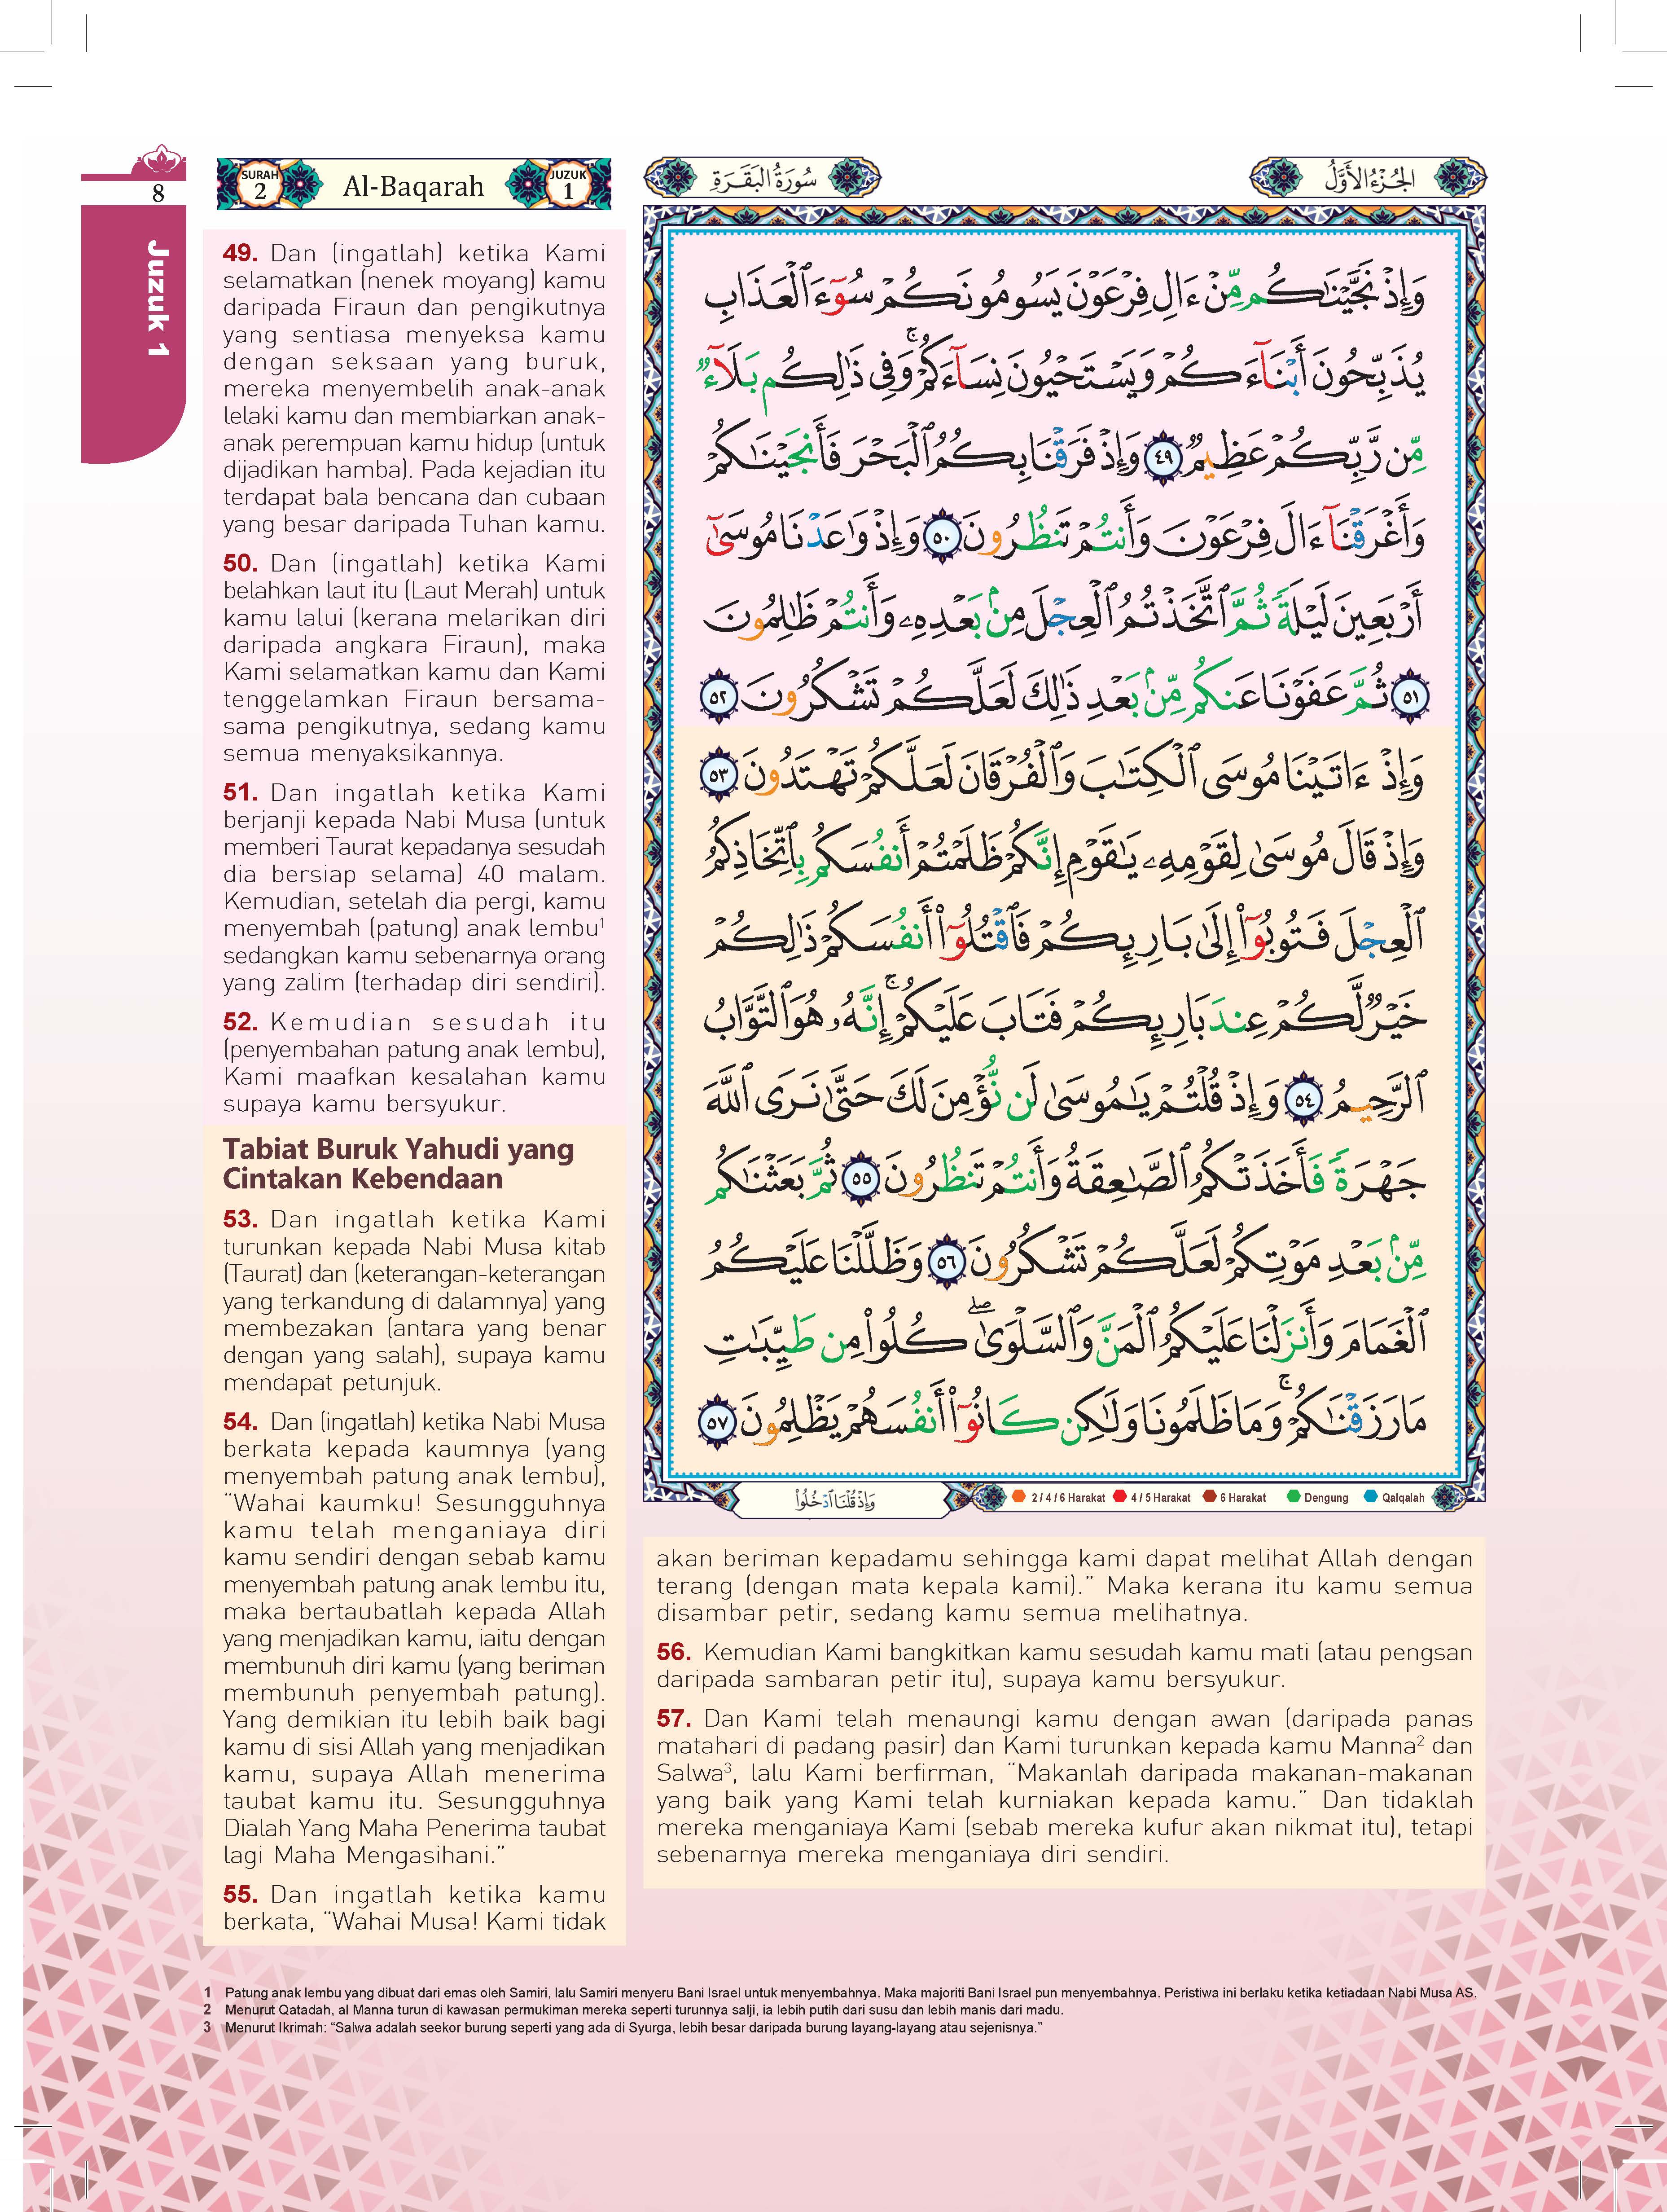 8
Juzuk 1
SURAH
2
Al-Baqarah
JUZUK
1
49. Dan (ingatlah) ketika Kami
selamatkan (nenek moyang) kamu
daripada Firaun dan pengikutnya
yang sentiasa menyeksa kamu
dengan seksaan yang buruk,
mereka menyembelih anak-anak
lelaki kamu dan membiarkan anak-
anak perempuan kamu hidup (untuk
dijadikan hamba). Pada kejadian itu
terdapat bala bencana dan cubaan
yang besar daripada Tuhan kamu.
50. Dan (ingatlah) ketika Kami
belahkan laut itu (Laut Merah) untuk
kamu lalui (kerana melarikan diri
daripada angkara Firaun), maka
Kami selamatkan kamu dan Kami
tenggelamkan Firaun bersama-
sama pengikutnya, sedang kamu
semua menyaksikannya.
51. Dan ingatlah ketika Kami
berjanji kepada Nabi Musa (untuk
memberi Taurat kepadanya sesudah
dia bersiap selama) 40 malam.
Kemudian, setelah dia pergi, kamu
menyembah (patung) anak lembu¹
sedangkan kamu sebenarnya orang
yang zalim (terhadap diri sendiri).
52. Kemudian sesudah itu
(penyembahan patung anak lembu),
Kami maafkan kesalahan kamu
supaya kamu bersyukur.
Tabiat Buruk Yahudi yang
Cintakan Kebendaan
53. Dan ingatlah ketika Kami
turunkan kepada Nabi Musa kitab
(Taurat) dan (keterangan-keterangan
yang terkandung di dalamnya) yang
membezakan (antara yang benar
dengan yang salah), supaya kamu
mendapat petunjuk.
54. Dan (ingatlah) ketika Nabi Musa
berkata kepada kaumnya (yang
menyembah patung anak lembu),
“Wahai kaumku! Sesungguhnya
kamu telah menganiaya diri
kamu sendiri dengan sebab kamu
menyembah patung anak lembu itu,
maka bertaubatlah kepada Allah
yang menjadikan kamu, iaitu dengan
membunuh diri kamu (yang beriman
membunuh penyembah patung).
Yang demikian itu lebih baik bagi
kamu di sisi Allah yang menjadikan
kamu, supaya Allah menerima
taubat kamu itu. Sesungguhnya
Dialah Yang Maha Penerima taubat
lagi Maha Mengasihani.”
55. Dan ingatlah ketika kamu
berkata, “Wahai Musa! Kami tidak
سُورَةُ البَقَرَةِ
الجُزْءُ الأَوَّلُ
وَإِذْ نَجَّيْنَٰكُم مِّنْ ءَالِ فِرْعَوْنَ يَسُومُونَكُمْ سُوٓءَ ٱلْعَذَابِ
يُذَبِّحُونَ أَبْنَآءَكُمْ وَيَسْتَحْيُونَ نِسَآءَكُمْ ۚ وَفِى ذَٰلِكُم بَلَآءٌ
مِّن رَّبِّكُمْ عَظِيمٌ ٤٩ وَإِذْ فَرَقْنَا بِكُمُ ٱلْبَحْرَ فَأَنجَيْنَٰكُمْ
وَأَغْرَقْنَآ ءَالَ فِرْعَوْنَ وَأَنتُمْ تَنظُرُونَ ٥٠ وَإِذْ وَٰعَدْنَا مُوسَىٰٓ
أَرْبَعِينَ لَيْلَةً ثُمَّ ٱتَّخَذْتُمُ ٱلْعِجْلَ مِنۢ بَعْدِهِۦ وَأَنتُمْ ظَٰلِمُونَ
٥١ ثُمَّ عَفَوْنَا عَنكُم مِّنۢ بَعْدِ ذَٰلِكَ لَعَلَّكُمْ تَشْكُرُونَ ٥٢
وَإِذْ ءَاتَيْنَا مُوسَى ٱلْكِتَٰبَ وَٱلْفُرْقَانَ لَعَلَّكُمْ تَهْتَدُونَ ٥٣
وَإِذْ قَالَ مُوسَىٰ لِقَوْمِهِۦ يَٰقَوْمِ إِنَّكُمْ ظَلَمْتُمْ أَنفُسَكُم بِٱتِّخَاذِكُمُ
ٱلْعِجْلَ فَتُوبُوٓا۟ إِلَىٰ بَارِئِكُمْ فَٱقْتُلُوٓا۟ أَنفُسَكُمْ ذَٰلِكُمْ
خَيْرٌ لَّكُمْ عِندَ بَارِئِكُمْ فَتَابَ عَلَيْكُمْ ۚ إِنَّهُۥ هُوَ ٱلتَّوَّابُ
ٱلرَّحِيمُ ٥٤ وَإِذْ قُلْتُمْ يَٰمُوسَىٰ لَن نُّؤْمِنَ لَكَ حَتَّىٰ نَرَى ٱللَّهَ
جَهْرَةً فَأَخَذَتْكُمُ ٱلصَّٰعِقَةُ وَأَنتُمْ تَنظُرُونَ ٥٥ ثُمَّ بَعَثْنَٰكُم
مِّنۢ بَعْدِ مَوْتِكُمْ لَعَلَّكُمْ تَشْكُرُونَ ٥٦ وَظَلَّلْنَا عَلَيْكُمُ
ٱلْغَمَامَ وَأَنزَلْنَا عَلَيْكُمُ ٱلْمَنَّ وَٱلسَّلْوَىٰ ۖ كُلُوا۟ مِن طَيِّبَٰتِ
مَا رَزَقْنَٰكُمْ ۚ وَمَا ظَلَمُونَا وَلَٰكِن كَانُوٓا۟ أَنفُسَهُمْ يَظْلِمُونَ ٥٧
وَإِذْ قُلْنَا ادْخُلُوا۟
2 / 4 / 6 Harakat 4 / 5 Harakat 6 Harakat Dengung Qalqalah
akan beriman kepadamu sehingga kami dapat melihat Allah dengan
terang (dengan mata kepala kami).” Maka kerana itu kamu semua
disambar petir, sedang kamu semua melihatnya.
56. Kemudian Kami bangkitkan kamu sesudah kamu mati (atau pengsan
daripada sambaran petir itu), supaya kamu bersyukur.
57. Dan Kami telah menaungi kamu dengan awan (daripada panas
matahari di padang pasir) dan Kami turunkan kepada kamu Manna² dan
Salwa³, lalu Kami berfirman, “Makanlah daripada makanan-makanan
yang baik yang Kami telah kurniakan kepada kamu.” Dan tidaklah
mereka menganiaya Kami (sebab mereka kufur akan nikmat itu), tetapi
sebenarnya mereka menganiaya diri sendiri.
1 Patung anak lembu yang dibuat dari emas oleh Samiri, lalu Samiri menyeru Bani Israel untuk menyembahnya. Maka majoriti Bani Israel pun menyembahnya. Peristiwa ini berlaku ketika ketiadaan Nabi Musa AS.
2 Menurut Qatadah, al Manna turun di kawasan permukiman mereka seperti turunnya salji, ia lebih putih dari susu dan lebih manis dari madu.
3 Menurut Ikrimah: “Salwa adalah seekor burung seperti yang ada di Syurga, lebih besar daripada burung layang-layang atau sejenisnya.”